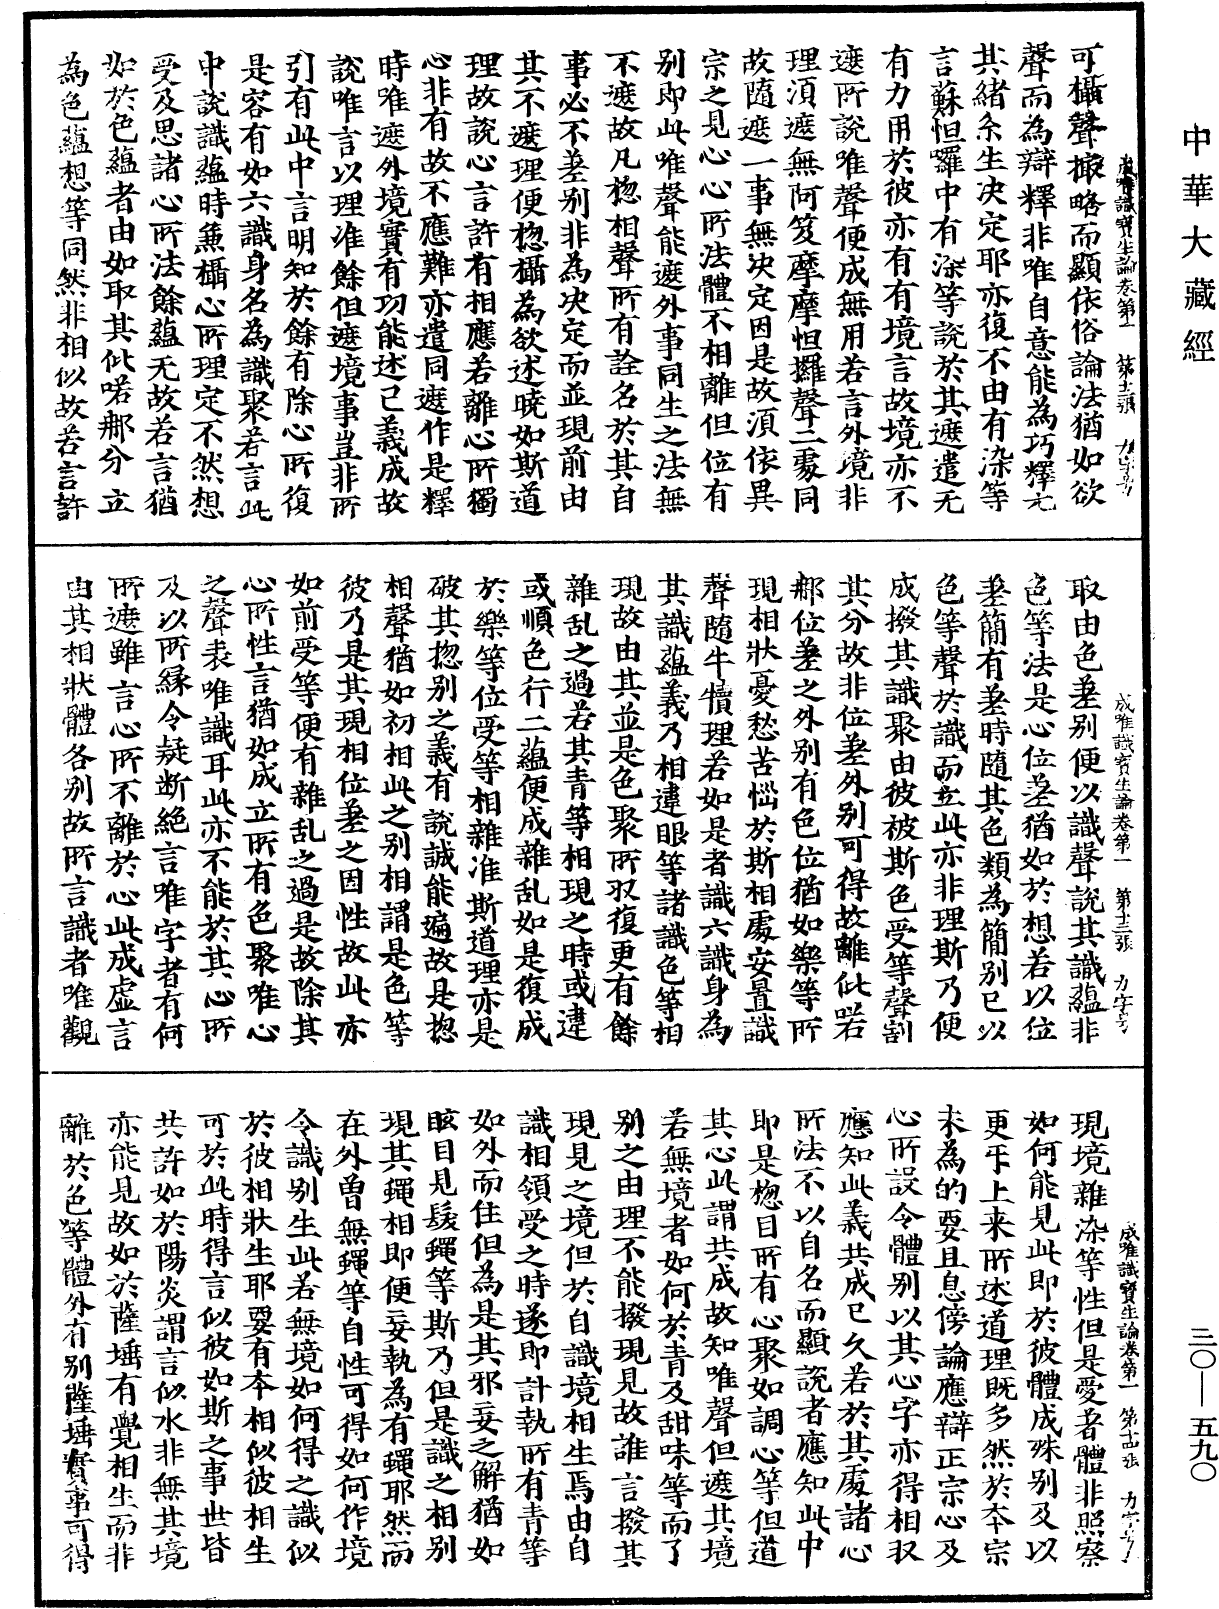 中華大藏經
成唯識寶生論卷第一　第十二張　力字号
可攝聲撮略而顯依俗論法猶如欲
聲而為辯釋非唯自意能為巧釋无
其緒糸生决定耶亦復不由有染等
言蘇怛囉中有染等說於其遮遣无
有力用於彼亦有有境言故境亦不
遮所說唯聲便成無用若言外境非
理須遮無阿笈摩摩怛攞聲二處同
故隨遮一事無决定因是故須依異
宗之見心心所法體不相離但位有
別即此唯聲能遮外事同生之法無
不遮故凡惣相聲所有詮名於其自
事必不差別非為决定而並現前由
其不遮理便惣攝為欲述曉如斯道
理故說心言許有相應若離心所獨
心非有故不應難亦遣同遮作是釋
時唯遮外境實有功能述已義成故
說唯言以理准餘但遮境事豈非所
引有此中言明知於餘有除心所復
是容有如六識身名為識聚若言此
中說識蘊時兼攝心所理定不然想
受及思諸心所法餘蘊无故若言猶
如於色蘊者由如取其此喏那分立
為色蘊想等同然非相似故若言許
成唯識寶生論卷第一　第十三張　力字号
取由色差別便以識聲說其識蘊非
色等法是心位差猶如於想若以位
差簡有差時隨其色類為簡別已以
色等聲於識而立此亦非理斯乃便
成撥其識聚由彼被斯色受等聲割
其分故非位差外別可得故離此喏
那位差之外別有色位猶如樂等所
現相狀憂愁苦惱於斯相處安置識
聲隨牛犢理若如是者識六識身為
其識蘊義乃相違眼等諸識色等相
現故由其並是色聚所収復更有餘
雜乱之過若其青等相現之時或違
或順色行二蘊便成雜乱如是復成
於樂等位受等相雜准斯道理亦是
破其惣別之義有說誠能遍故是惣
相聲猶如初相此之別相謂是色等
彼乃是其現相位差之因性故此亦
如前受等便有雜乱之過是故除其
心所性言猶如成立所有色聚唯心
之聲表唯識耳此亦不能於其心所
及以所緣令疑断絕言唯字者有何
所遮雖言心所不離於心此成虛言
由其相狀體各別故所言識者唯觀
成唯識寶生論卷第一　第十四張　力字号
現境雜染等性但是愛者體非照察
如何能見此即於彼體成殊別及以
更乎上来所述道理既多然於本宗
未為的要且息傍論應辯正宗心及
心所設令體別以其心字亦得相収
應知此義共成已久若於其處諸心
所法不以自名而顯說者應知此中
即是惣目所有心聚如調心等但道
其心此謂共成故知唯聲但遮其境
若無境者如何於青及甜味等而了
別之由理不能撥現見故誰言撥其
現見之境但於自識境相生焉由自
識相領受之時遂即計執所有青等
如外而住但為是其邪妄之解猶如
眩目見髮蠅等斯乃但是識之相別
現其蠅相即便妄執為有蠅耶然而
在外曾無蠅等自性可得如何作境
令識別生此若無境如何得之識似
於彼相狀生耶要有本相似彼相生
可於此時得言似彼如斯之事世皆
共許如於陽炎謂言似水非無其境
亦能見故如於薩埵有覺相生而非
離於色等體外有別薩埵實事可得
三〇—五九〇